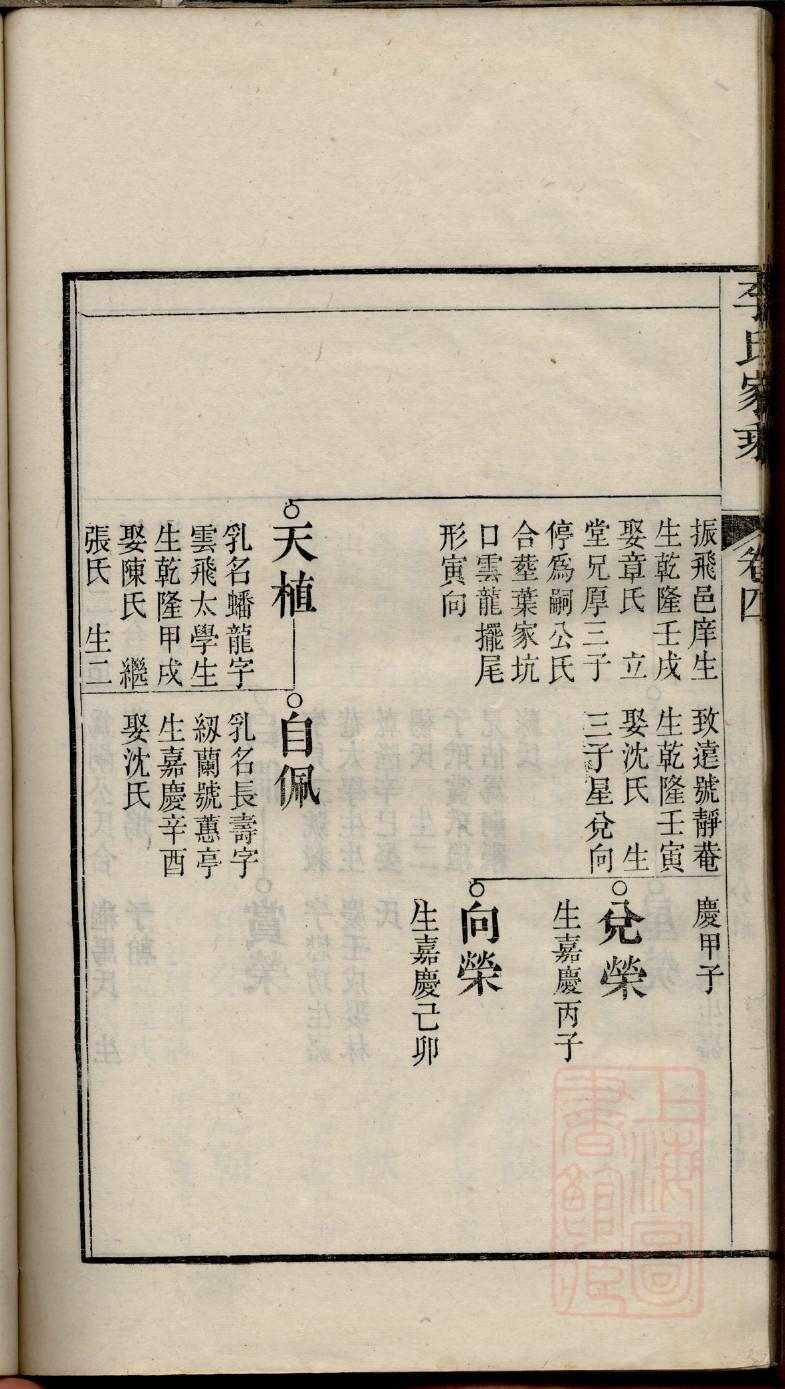 李氏家乘
卷四
振飛邑庠生
生乾隆壬戌
娶章氏 立
堂兄厚三子
停爲嗣公氏
合塟葉家坑
口雲龍擺尾
形寅向
致遠號靜菴
生乾隆壬寅
娶沈氏 生
三子星兌向
慶甲子
兌榮
生嘉慶丙子
向榮
生嘉慶己卯
天植
乳名蟠龍字
雲飛太學生
生乾隆甲戌
娶陳氏 繼
張氏 生二
自佩
乳名長壽字
紉蘭號蕙亭
生嘉慶辛酉
娶沈氏
上海圖
書館藏